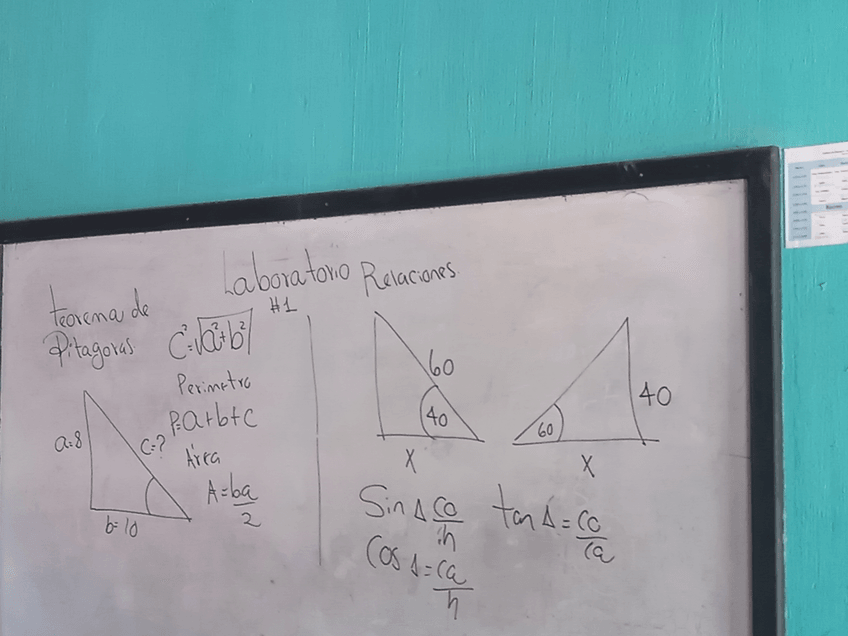 Laboratorio Relaciones
#1
teorema de
Pitagoras
C²=√a²+b²
Perimetro
P=a+b+c
Área
A=ba/2
a=8
c=?
b=10
60
40
X
40
60
X
Sin Δ co/h
Cos Δ=ca/h
tan Δ=co/ca